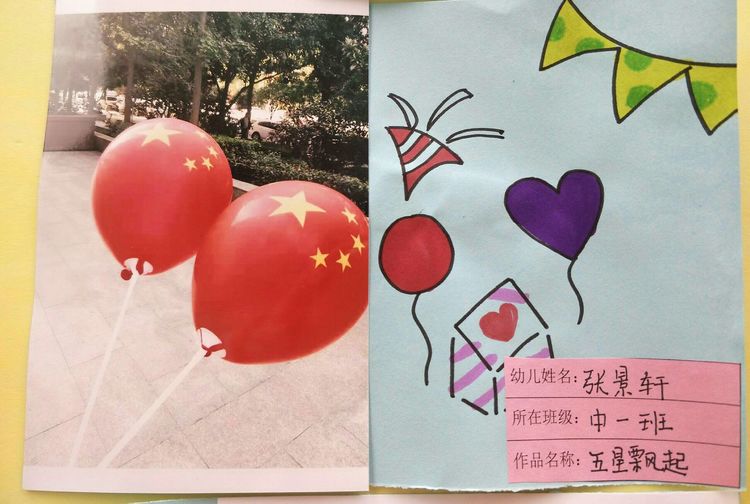 幼儿姓名：张景轩
所在班级：中一班
作品名称：五星飘起